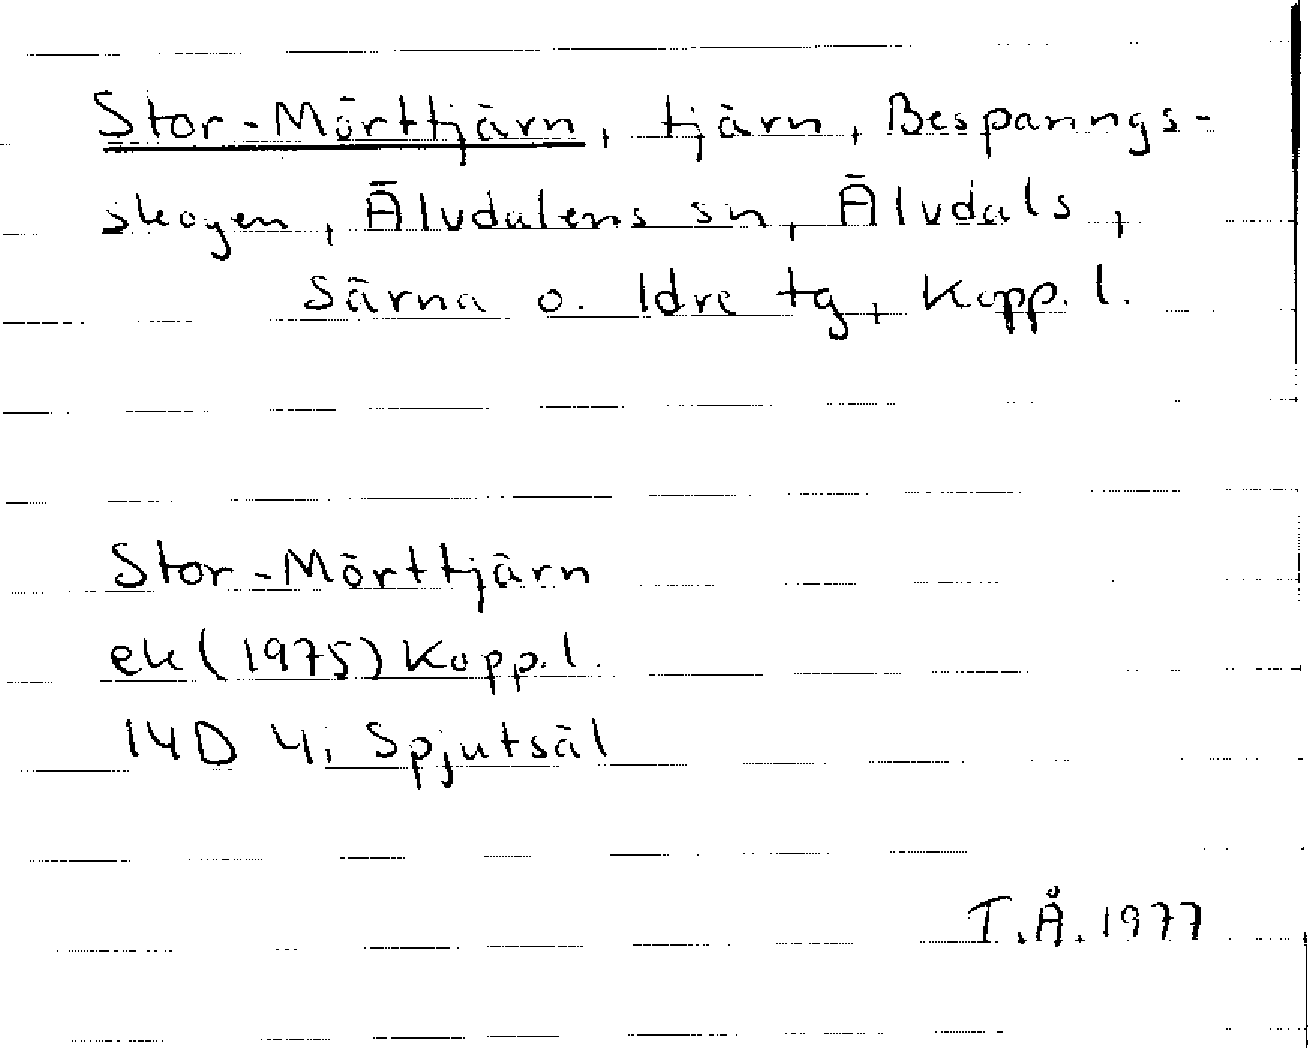 Stor-Mörttjärn, tjärn, Besparings-
skogen, Älvdalens sn, Älvdals,
Särna o. Idre tg, Kopp. l.
Stor-Mörttjärn
ek (1975) Kopp. l.
14D 4i Spjutsäl
T.Å. 1977